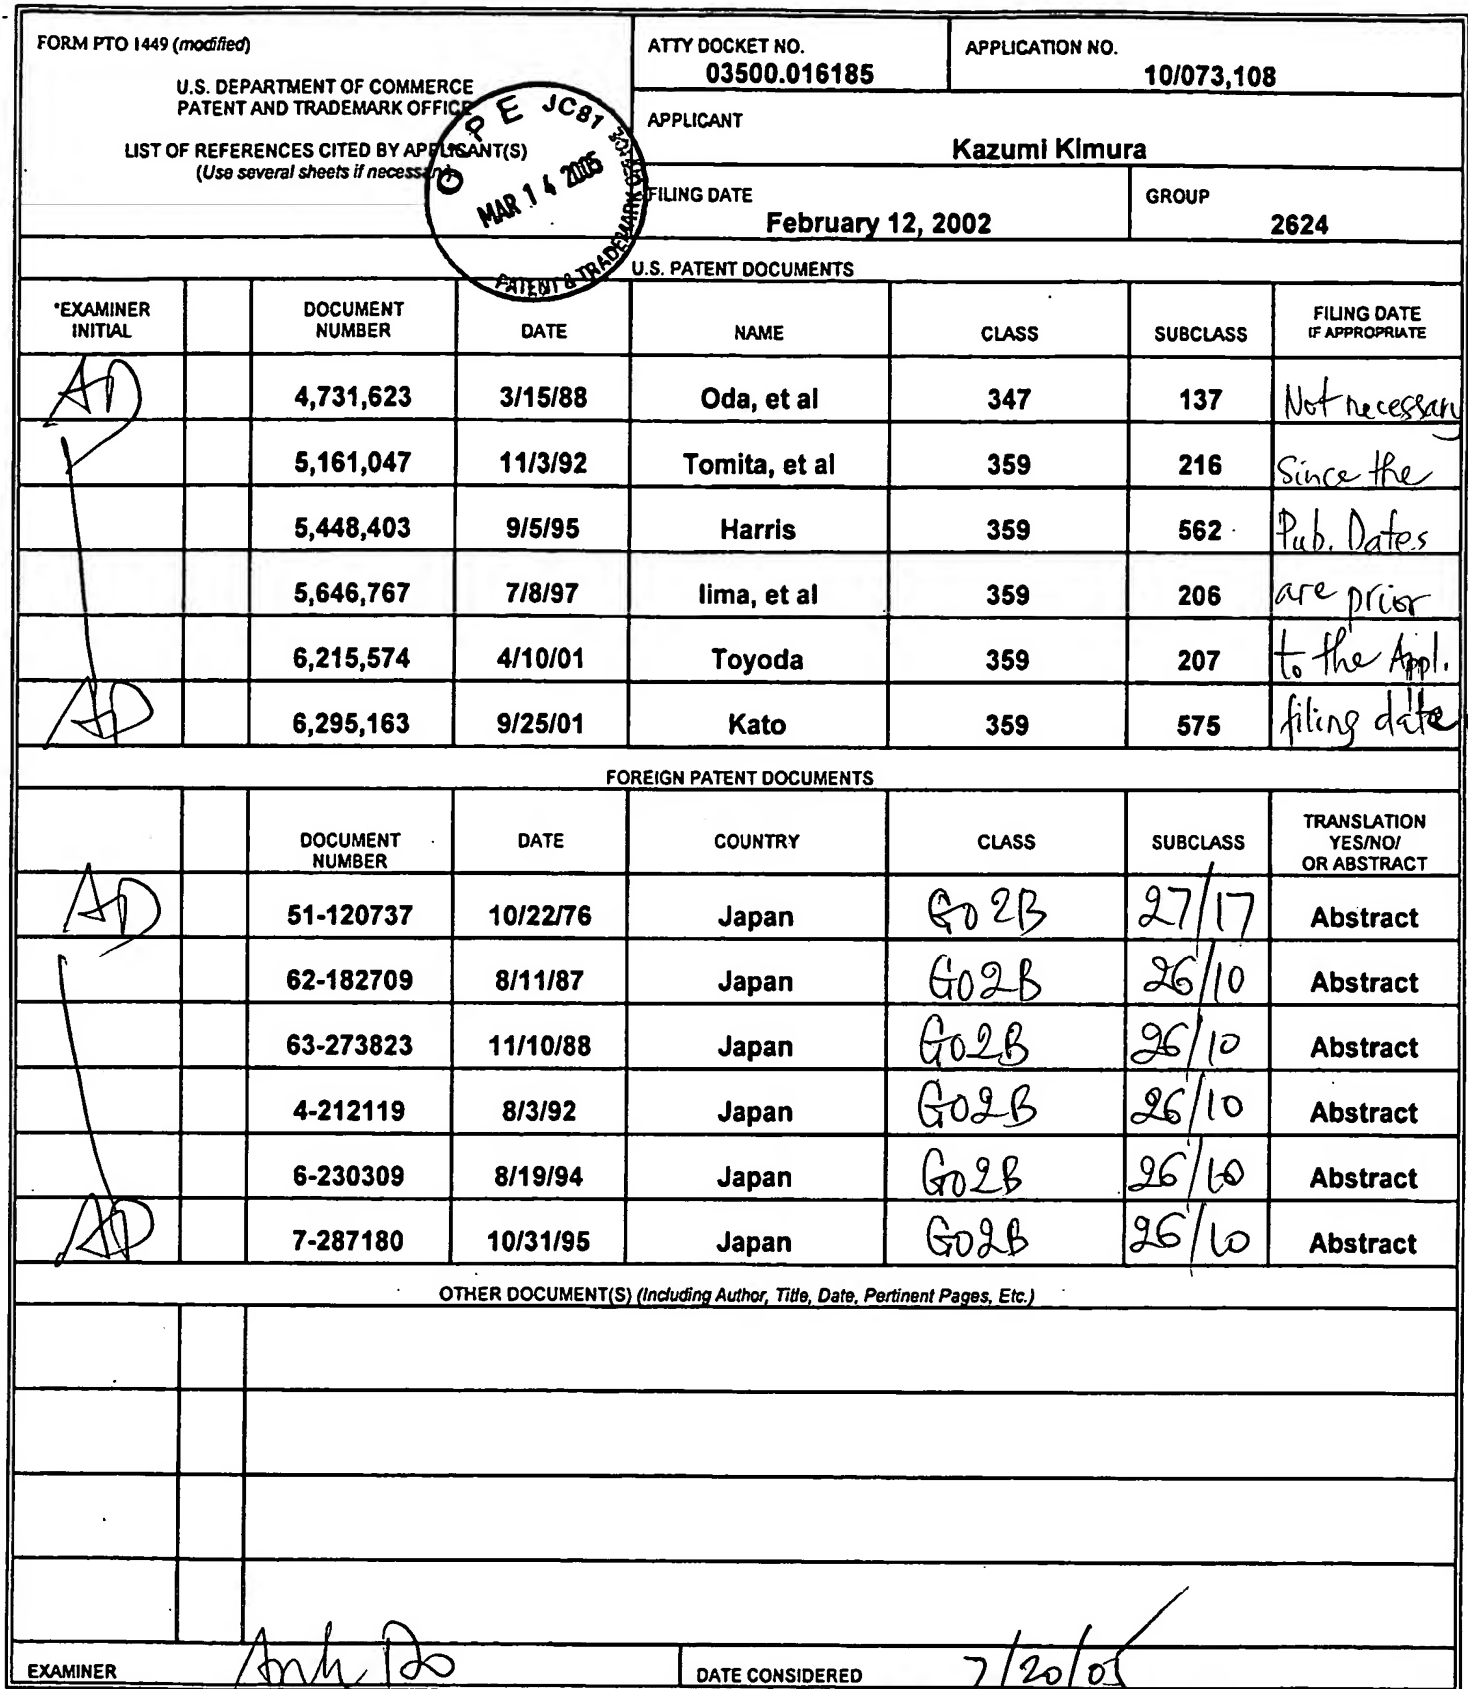 FORM PTO 1449 (modified)
U.S. DEPARTMENT OF COMMERCE
PATENT AND TRADEMARK OFFICE
LIST OF REFERENCES CITED BY APPLICANT(S)
(Use several sheets if necessary)
O I P E JC81
MAR 14 2005
PATENT & TRADEMARK OFFICE
ATTY DOCKET NO.
03500.016185
APPLICATION NO.
10/073,108
APPLICANT
Kazumi Kimura
FILING DATE
February 12, 2002
GROUP
2624
U.S. PATENT DOCUMENTS
*EXAMINER INITIAL DOCUMENT NUMBER DATE NAME CLASS SUBCLASS FILING DATE IF APPROPRIATE
AD 4,731,623 3/15/88 Oda, et al 347 137 Not necessary
5,161,047 11/3/92 Tomita, et al 359 216 Since the
5,448,403 9/5/95 Harris 359 562 Pub. Dates
5,646,767 7/8/97 Iima, et al 359 206 are prior
6,215,574 4/10/01 Toyoda 359 207 to the Appl.
AD 6,295,163 9/25/01 Kato 359 575 filing date
FOREIGN PATENT DOCUMENTS
DOCUMENT NUMBER DATE COUNTRY CLASS SUBCLASS TRANSLATION YES/NO/ OR ABSTRACT
AD 51-120737 10/22/76 Japan G02B 27/17 Abstract
62-182709 8/11/87 Japan G02B 26/10 Abstract
63-273823 11/10/88 Japan G02B 26/10 Abstract
4-212119 8/3/92 Japan G02B 26/10 Abstract
6-230309 8/19/94 Japan G02B 26/10 Abstract
AD 7-287180 10/31/95 Japan G02B 26/10 Abstract
OTHER DOCUMENT(S) (Including Author, Title, Date, Pertinent Pages, Etc.)
EXAMINER Anh Do DATE CONSIDERED 7/20/05